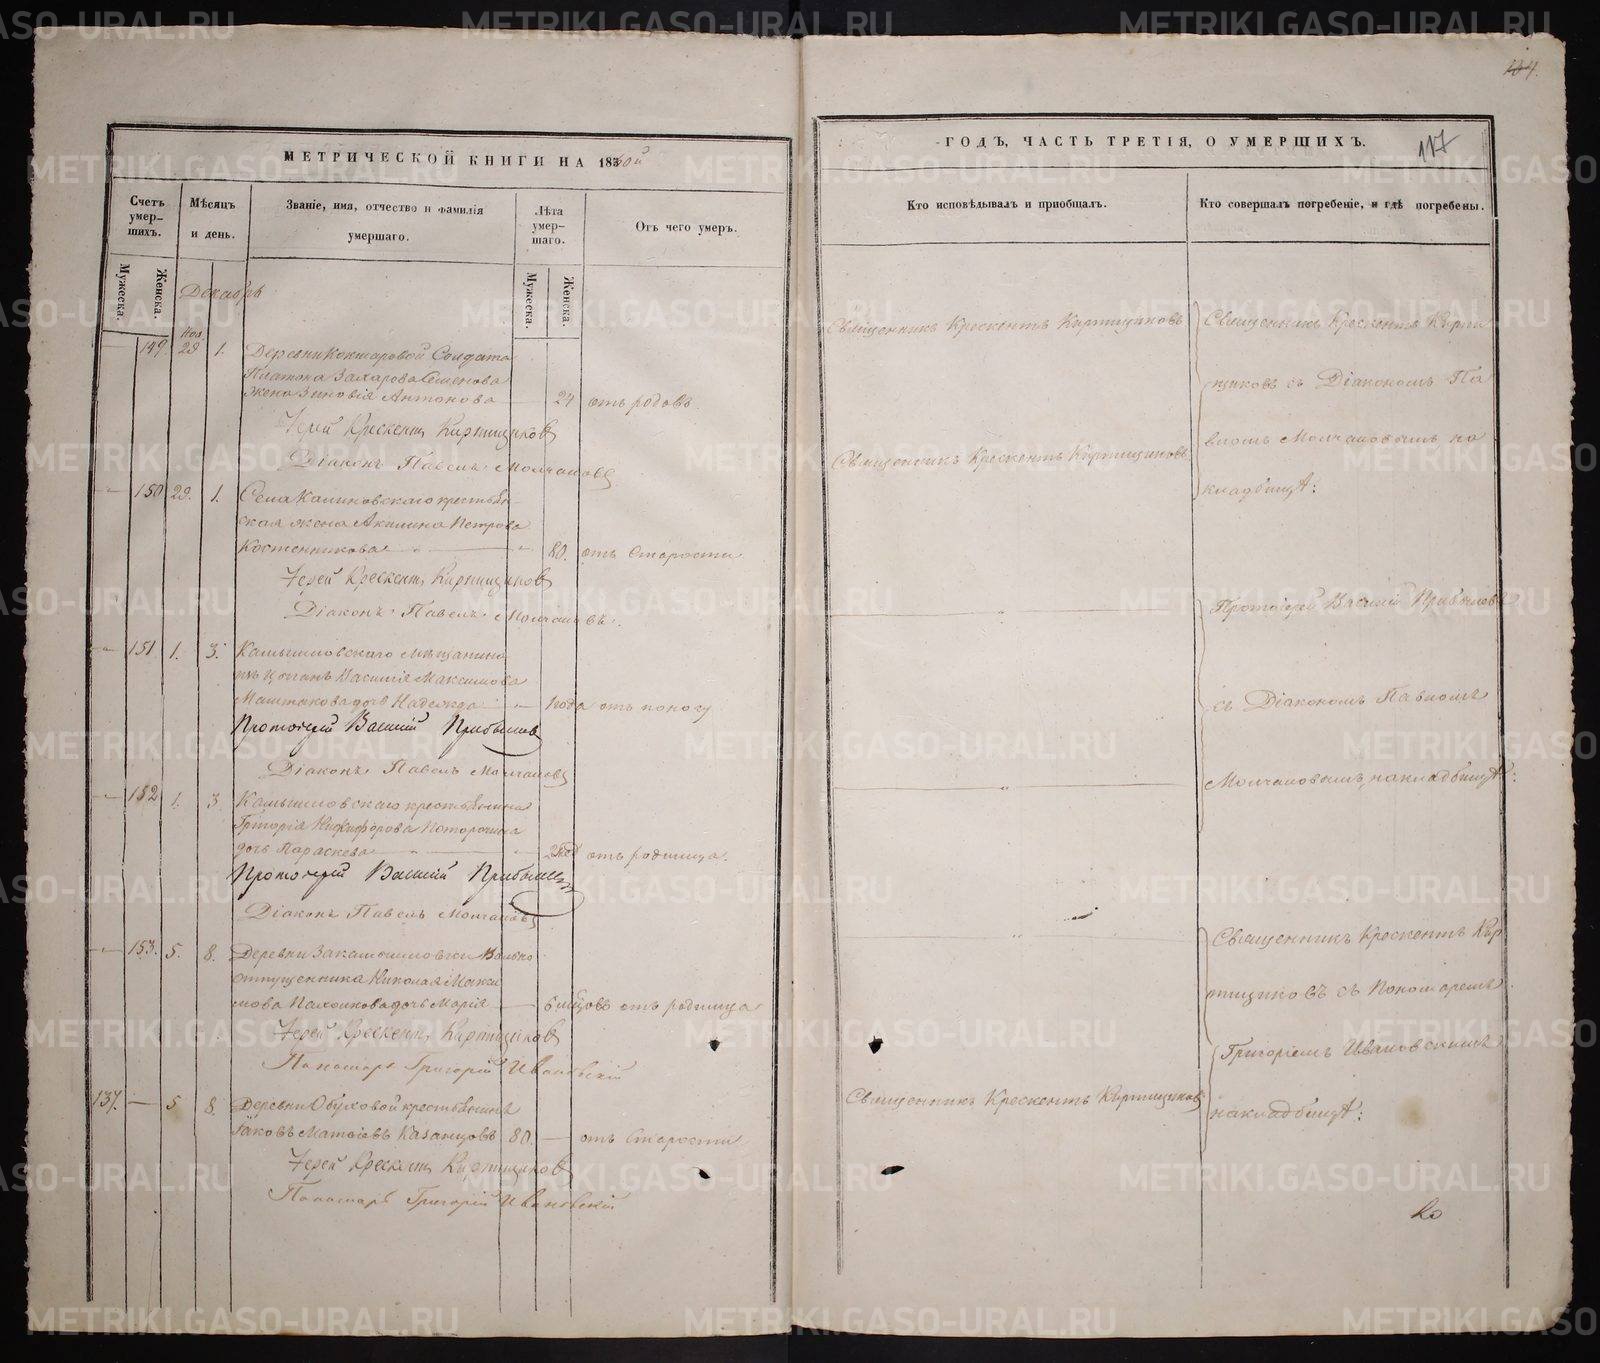 METRIKI.GASO-URAL.RU
МЕТРИЧЕСКОЙ КНИГИ НА 183
Счетъ умер-
шихъ.
Мужеска.
Женска.
Мѣсяцъ
и день.
Званіе, имя, отчество и фамилія
умершаго.
Лѣта
умер-
шаго.
Мужеска.
Женска.
Отъ чего умеръ.
Декабрь
Ноя.
149. 29 1. Деревни Кокшаровой Солдата
Платона Захарова Семенова
жена Зиновія Антонова 24 отъ родовъ
Іерей Крескентъ Кирпищиковъ
Діаконъ Павелъ Молчановъ
150 29. 1. Села Калиновскаго крестьян-
ская жена Акилина Петрова
Костенникова 80. отъ Старости
Іерей Крескентъ Кирпищиковъ
Діаконъ Павелъ Молчановъ.
151 1. 3. Камышловскаго мѣщанина
Василія Максимова
дочь Надежда 1 года отъ поносу
Протоіерей Василій Прибылевъ
Діаконъ Павелъ Молчановъ
152 1. 3 Камышловскаго крестьянина
Григорія Никифорова
дочь Параскева отъ родимца.
Протоіерей Василій Прибылевъ
Діаконъ Павелъ Молчановъ
153. 5. 8. Деревни Закамышловки Вольно
отпущенника Николая Макси
мова дочь Марія 6 мѣсцовъ отъ родимца
Іерей Крескентъ Кирпищиковъ
Пономарь Григорій Ивановскій
137. 5 8. Деревни Обуховой крестьянинъ
Іаковъ Матѳіевъ Казанцовъ 80. отъ Старости
Іерей Крескентъ Кирпищиковъ
Пономарь Григорій Ивановскій
134.
ГОДЪ, ЧАСТЬ ТРЕТІЯ, О УМЕРШИХЪ. 117
Кто исповѣдывалъ и приобщалъ.
Кто совершалъ погребеніе, и гдѣ погребены.
Священникъ Крескентъ Кирпищиковъ
Священникъ Крескентъ Кирпи
щиковъ съ Діакономъ Па
вломъ Молчановымъ на
кладбищѣ:
Священникъ Крескентъ Кирпищиковъ
Протоіерей Василій Прибылевъ
съ Діакономъ Павломъ
Молчановымъ на кладбищѣ:
Священникъ Крескентъ Кир
пищиковъ съ Пономаремъ
Григоріемъ Ивановскимъ
на кладбищѣ:
Священникъ Крескентъ Кирпищиковъ